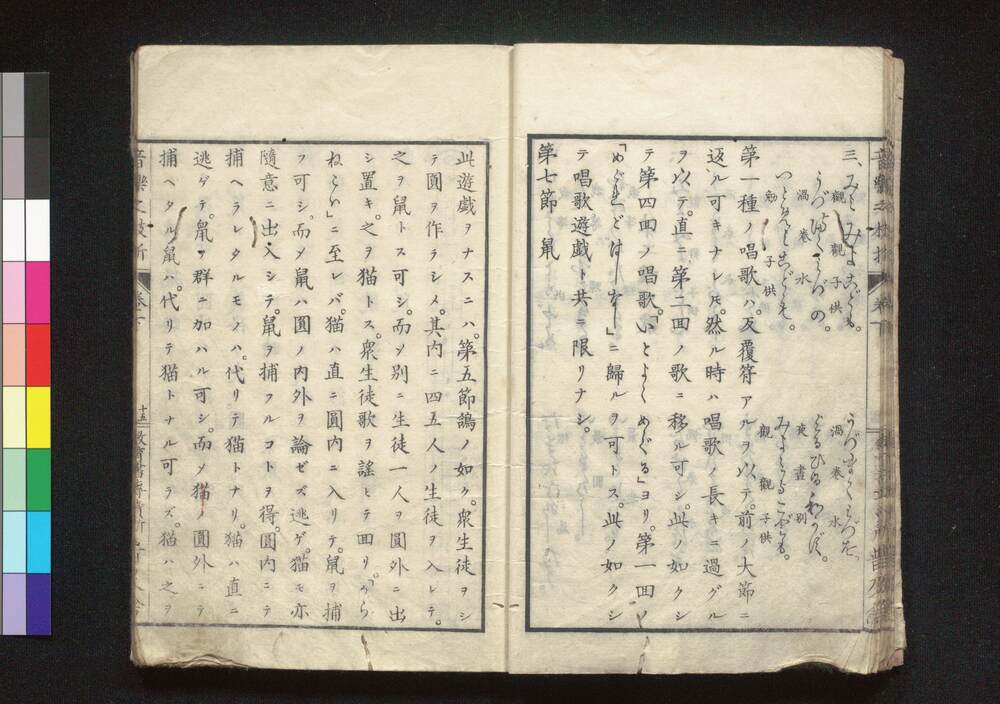 三、みよ〳〵みよこども。
觀 觀 子供
うづまくみづの。
渦 卷 水
子供
うづまくみづを。
渦 卷 水
よるひるわかず。
夜 晝 別
みよ〳〵こども。
觀 觀 子供
第一種ノ唱歌ハ。反覆符アルヲ以テ。前ノ大節ニ
返ル可キナレ𪜈。然ル時ハ唱歌ノ長キニ過グル
ヲ以テ。直ニ第二回ノ歌ニ移ル可シ。此ノ如クシ
テ第四回ノ唱歌。「いとよくめぐる」ヨリ。第一回ノ
ニ歸ルヲ可トス。此ノ如クシ
テ唱歌遊戯ト共ニ限リナシ。
第七節 鼠
此遊戯ヲナスニハ。第五節鴿ノ如ク。衆生徒ヲシ
テ圓ヲ作ラシメ。其內ニ四五人ノ生徒ヲ入レテ。
之ヲ鼠トス可シ。而ノ別ニ生徒一人ヲ圓外ニ出
シ置キ。之ヲ猫トス。衆生徒歌ヲ謠ヒテ回リ。
ニ至レバ。猫ハ直ニ圓內ニ入リテ。鼠ヲ捕
フ可シ。而ノ鼠ハ圓ノ內外ヲ論ゼズ逃ゲ。猫モ亦
隨意ニ出入シテ。鼠ヲ捕フルコトヲ得。圓內ニテ
捕ヘラレタルモノハ。代リテ猫トナリ。猫ハ直ニ
逃ゲテ。鼠ノ群ニ加ハル可シ。而ノ猫ノ圓外ニテ
捕ヘタル鼠ハ。代リテ猫トナル可ラズ。猫ハ之ヲ
十五